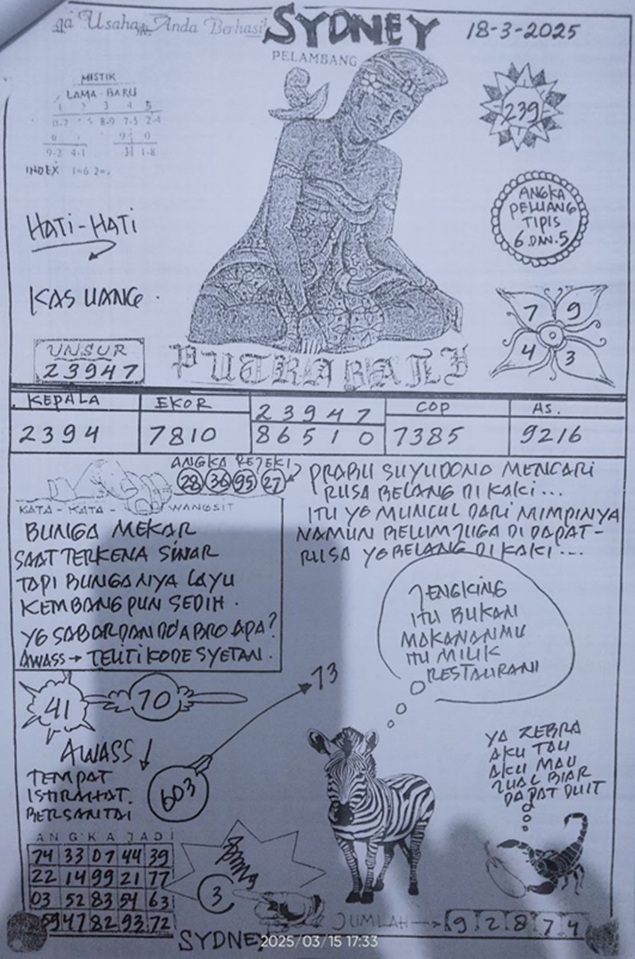 ga Usaha Anda Berhasil
SYDNEY
18-3-2025
PELAMBANG
MISTIK
LAMA - BARU
INDEX
239
ANGKA
PELUANG
TIPIS
6 DAN 5
HATI-HATI
KAS UANG.
7 9
4 3
UNSUR
23947
PUTRA BALI
KEPALA
2394
EKOR
7810
23947
86510
COP
7385
AS.
9216
ANGKA REJEKI
28 36 95 27
KATA - KATA WANGSIT
BUNGA MEKAR
SAAT TERKENA SINAR
TAPI BUNGANYA LAYU
KEMBANG PUN SEDIH.
YG SABAR DAN DO'A BRO APA?
AWASS → TELITI KODE SYETAN.
PRABU SUYUDONO MENCARI
RUSA BELANG DI KAKI...
ITU YG MUNCUL DARI MIMPINYA
NAMUN BELUM JUGA DI DAPAT-
RUSA YG BELANG DI KAKI...
JENGKING
ITU BUKAN
MAKANANMU
ITU MILIK
RESTAURANT
41
70
73
AWASS
TEMPAT
ISTIRAHAT.
BERSANTAI
603
YA ZEBRA
AKU TAU
AKU MAU
JUAL BIAR
DAPAT DUIT
ANGKA JADI
74 33 07 44 39
22 14 99 21 77
03 52 83 54 63
59 47 82 93 72
3
JUMLAH → 9 2 8 7 4
SYDNEY
2025/03/15 17:33